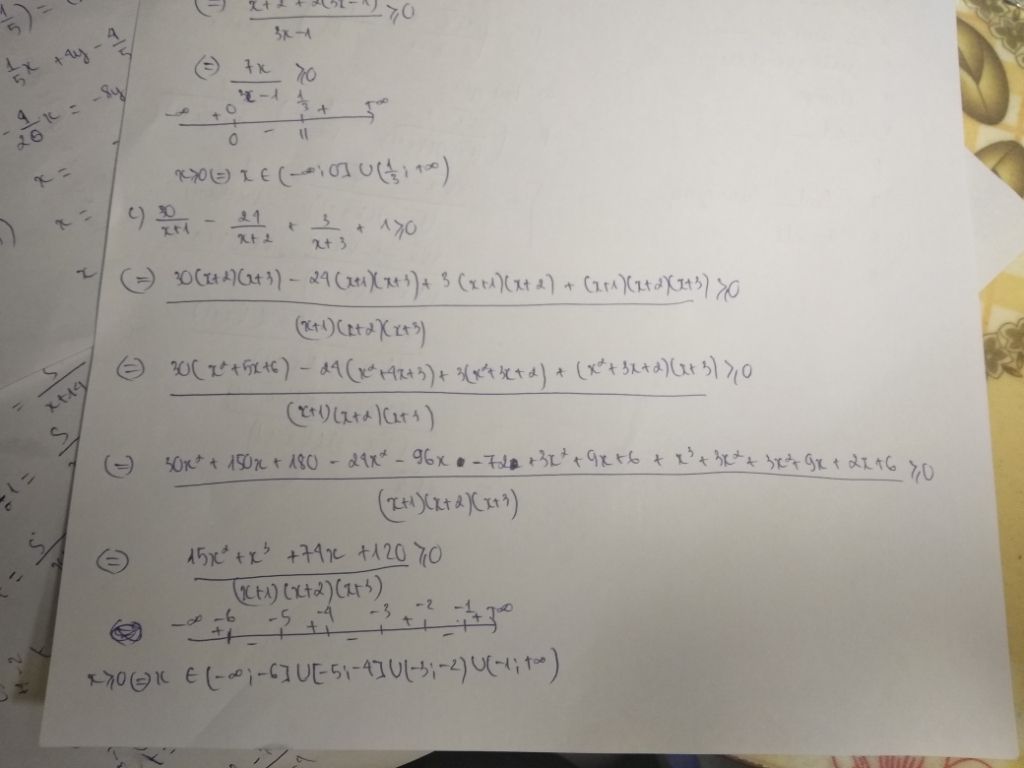 (=) x+2+2(3x-1)/3x-1 ≥0
(=) 7x/3x-1 ≥0
-∞ + 0 1/3 + +∞
0 - ||
x≥0(=) x ∈ (-∞;0] ∪ (1/3; +∞)
c) 30/x+1 - 24/x+2 + 3/x+3 + 1≥0
(=) 30(x+2)(x+3) - 24(x+1)(x+3) + 3(x+1)(x+2) + (x+1)(x+2)(x+3)/(x+1)(x+2)(x+3) ≥0
(=) 30(x²+5x+6) - 24(x²+4x+3) + 3(x²+3x+2) + (x²+3x+2)(x+3)/(x+1)(x+2)(x+3) ≥0
(=) 30x² + 150x + 180 - 24x² - 96x - 72 + 3x² + 9x + 6 + x³ + 3x² + 3x² + 9x + 2x + 6/(x+1)(x+2)(x+3) ≥0
(=) 15x² + x³ + 74x + 120/(x+1)(x+2)(x+3) ≥0
-∞ -6 -5 -4 -3 -2 -1 +∞
+ - + - + - +
x≥0(=) x ∈ (-∞;-6] ∪ [-5;-4] ∪ (-3;-2) ∪ (-1;+∞)
1/5x + 4y - 4/5
x =
x =
x